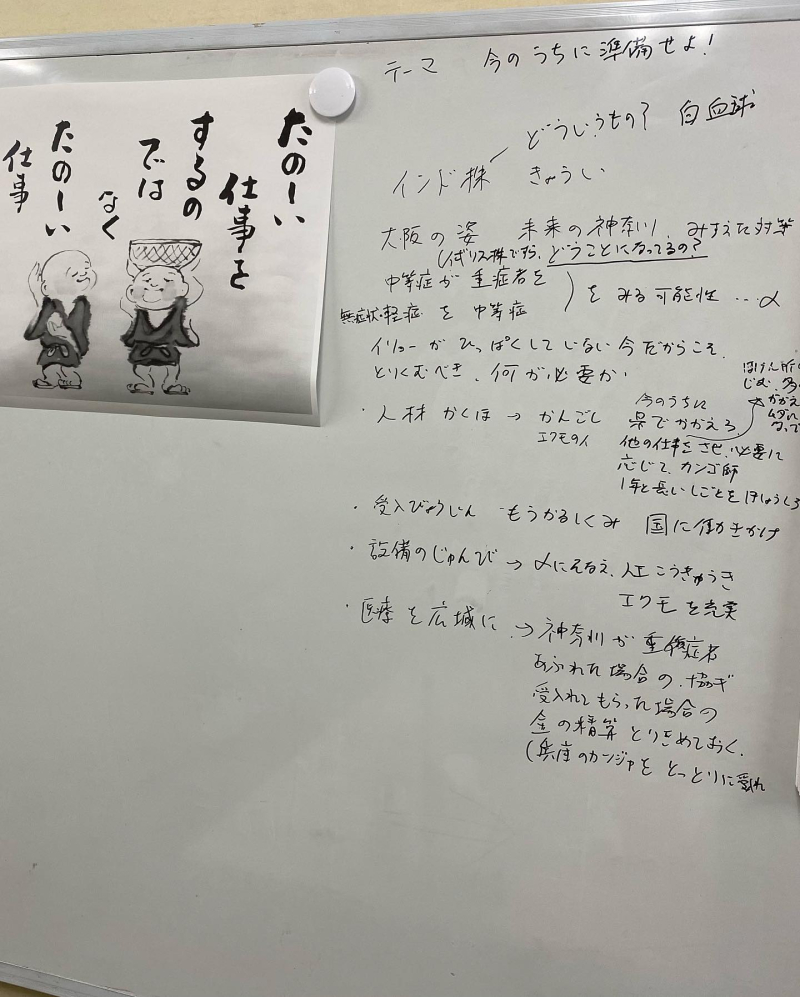 たのーい
仕事を
するの
では
なく
たのーい
仕事
テーマ 今のうちに準備せよ!
どういうもの? 白血球
インド株 きょうい
大阪の姿 未来の神奈川、みすえた対策
(イギリス株ですら、どうことになってるの?
中等症が重症者を
無症状・軽症を中等症
をみる可能性…〆
イリョーがひっぱくしてしない今だからこそ
とりくむべき、何が必要か
・人材かくほ→かんごし
エクモの人
今のうちに
県でかかえろ
他の仕事をさせ、必要に
応じて、カンゴ師
1年と長いしごとをほしょうしろ
ほけん所の
かかえ
ムダに
・受入びょうじん もうかるしくみ 国に働きかけ
・設備のじゅんび→〆にそなえ、人工こうきゅうき
エクモを充実
・医療を広域に→神奈川が重症者
あふれた場合の、協ギ
受入れてもらった場合の
金の精算とりきめておく、
(兵庫のカンジャをとっとりに受れ